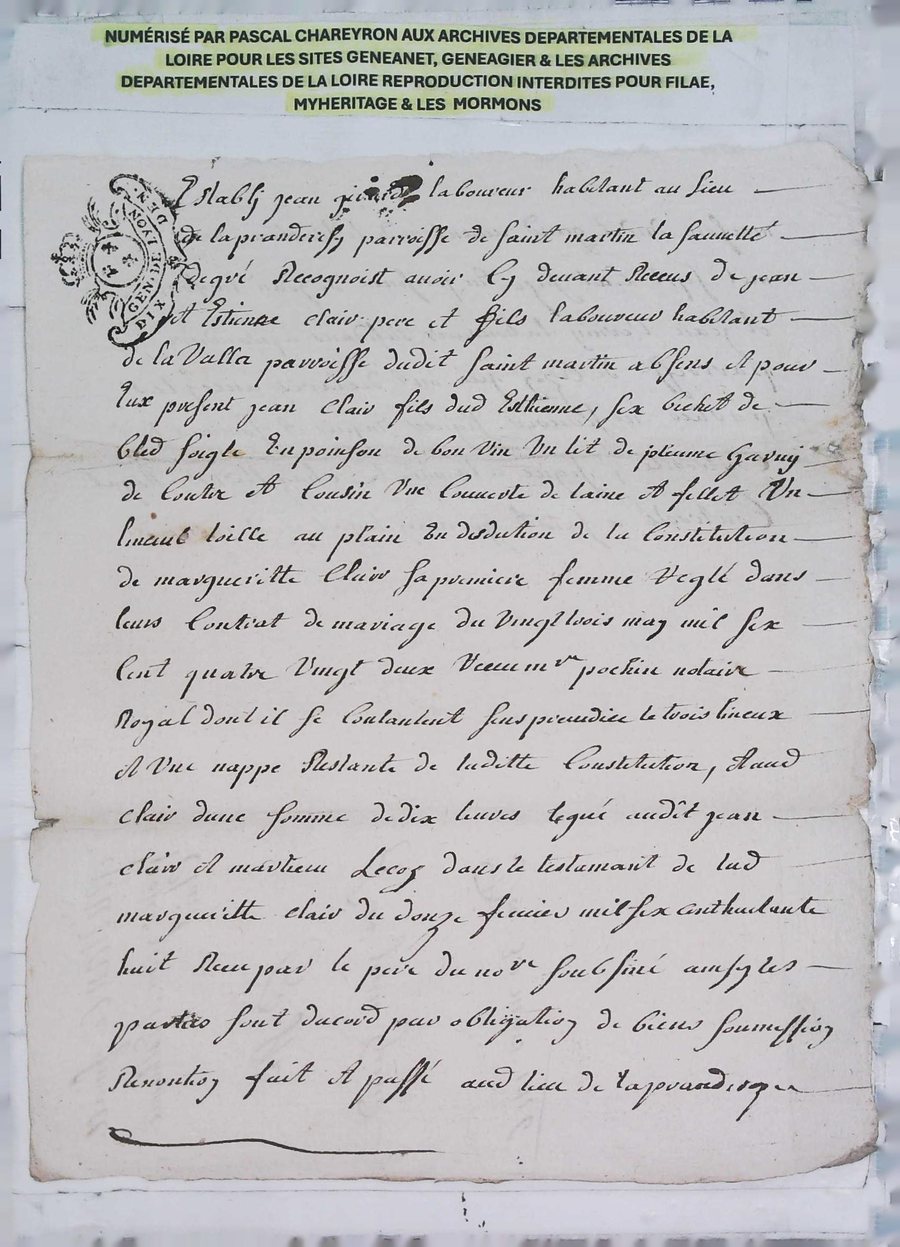 NUMÉRISÉ PAR PASCAL CHAREYRON AUX ARCHIVES DEPARTEMENTALES DE LA
LOIRE POUR LES SITES GENEANET, GENEAGIER & LES ARCHIVES
DEPARTEMENTALES DE LA LOIRE REPRODUCTION INTERDITES POUR FILAE,
MYHERITAGE & LES MORMONS
GEN. DE LYON
DIX DEN.
Establj jean laboureur habitant au lieu
de lapranderesy parroisse de saint martin la sauuetté
degré Recognoist auoir Cy deuant Receus de jean
et Estienne clair pere et fils laboureur habitant
de la Valla parroisse dudit saint martin absens et pour
Eux present jean Clair fils dud Esthienne, six bichet de
bled soigle En poinson de bon vin Vn lit de pleume Garnij
de Coutre et Cousin Vne Couuerte de laine et fellet Vn
linceul toille au plain En desdution de la Constitution
de margueritte Clair sa premiere femme Reglé dans
leurs Contrat de mariage du vingt trois may mil six
Cent quatre Vingt deux Receu mre pochin notaire
Royal dont il se Contantent sens preiudice le trois linceux
et Vne nappe Restante de laditte Constitution, et aud
clair dune somme de dix liures legué audit jean
clair et mathieu Lecoq dans le testamant de lad
margueritte clair du donze feurier mil six cent huictante
huit Receu par le pere du nore soubsiné ainsy les
parties sont dacord par obligation de biens soumission
Renontion fait et passé aud lieu de